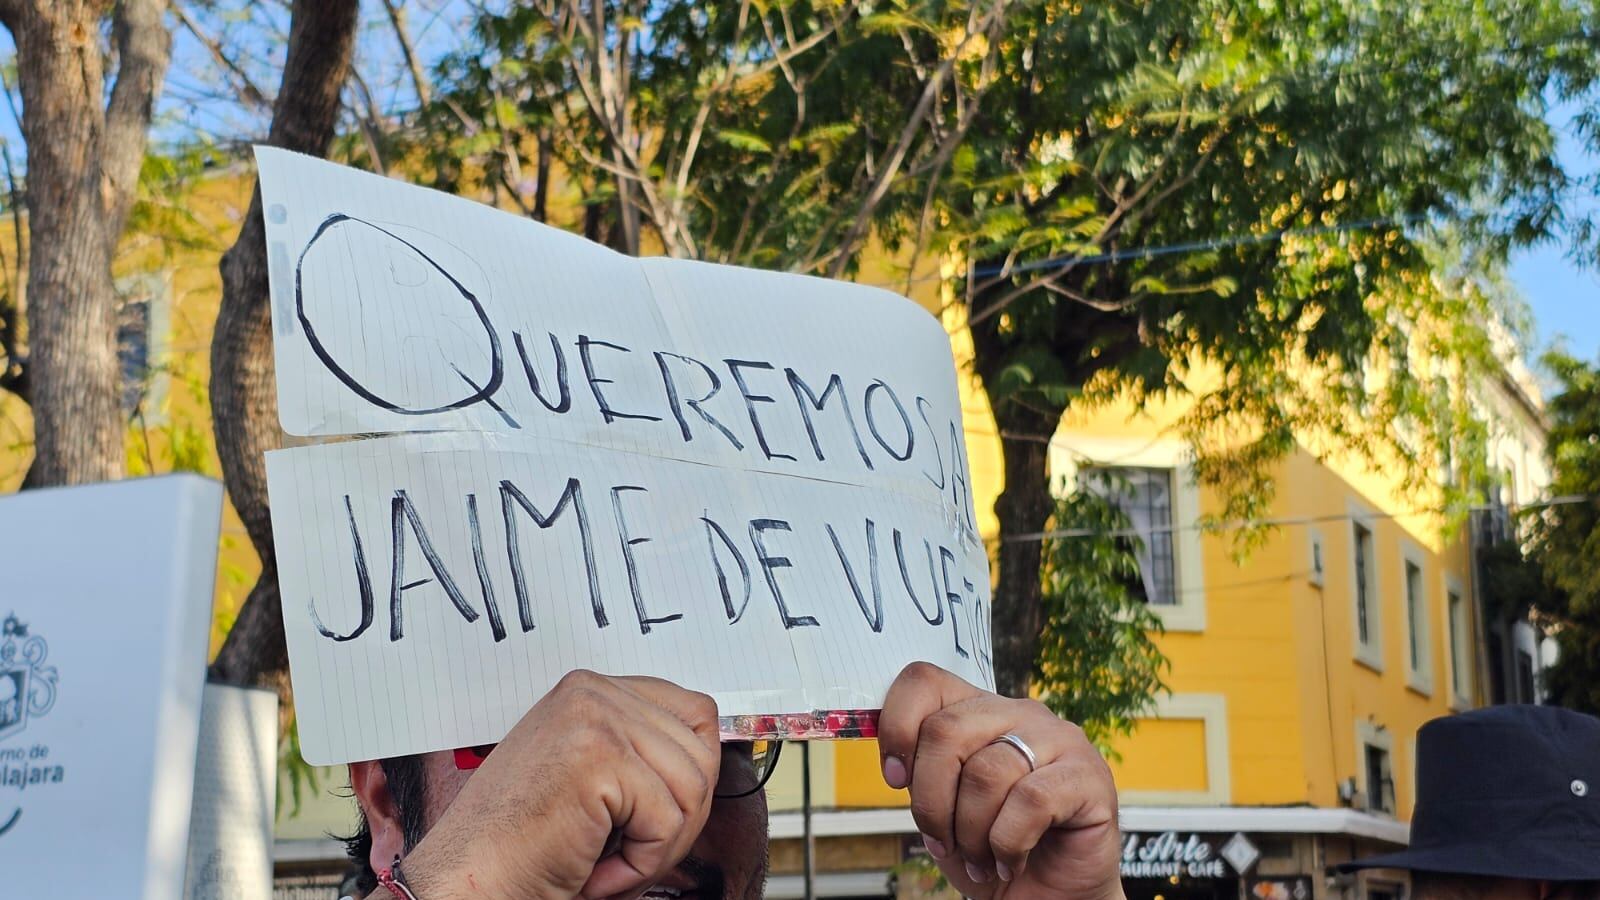 QUEREMOS A
JAIME DE VUELTA
rno de
lajara
l Arte
STAURANT-CAFÉ